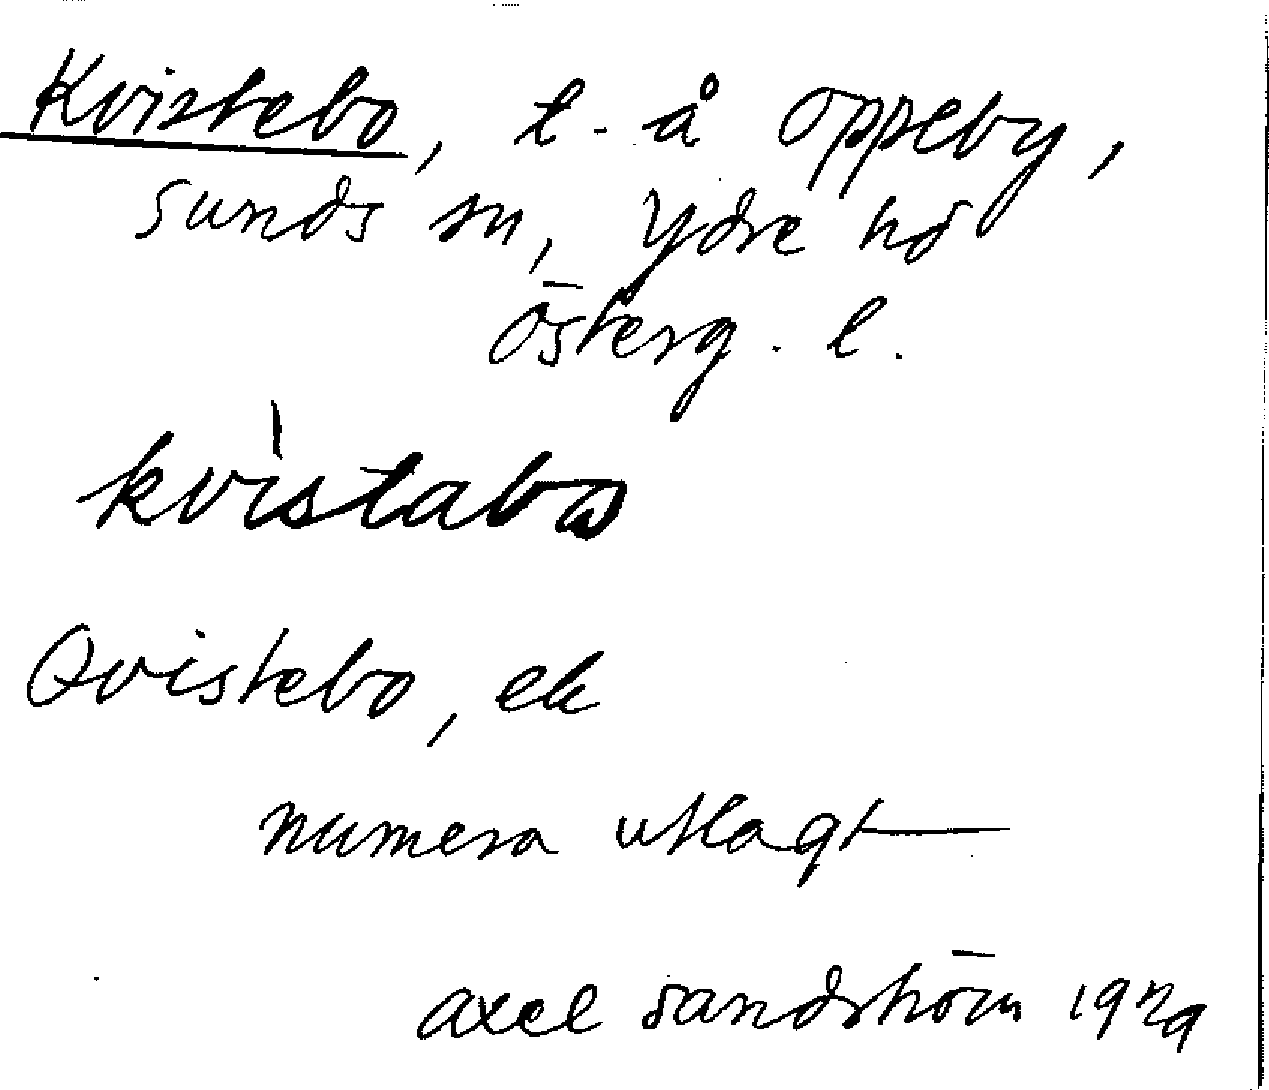 Kvistebo, t. å Oppeby,
Sunds sn, Ydre hd
Österg. l.
kvistabo
Qvistebo, ek
numera utlagt
Axel Sandström 1929